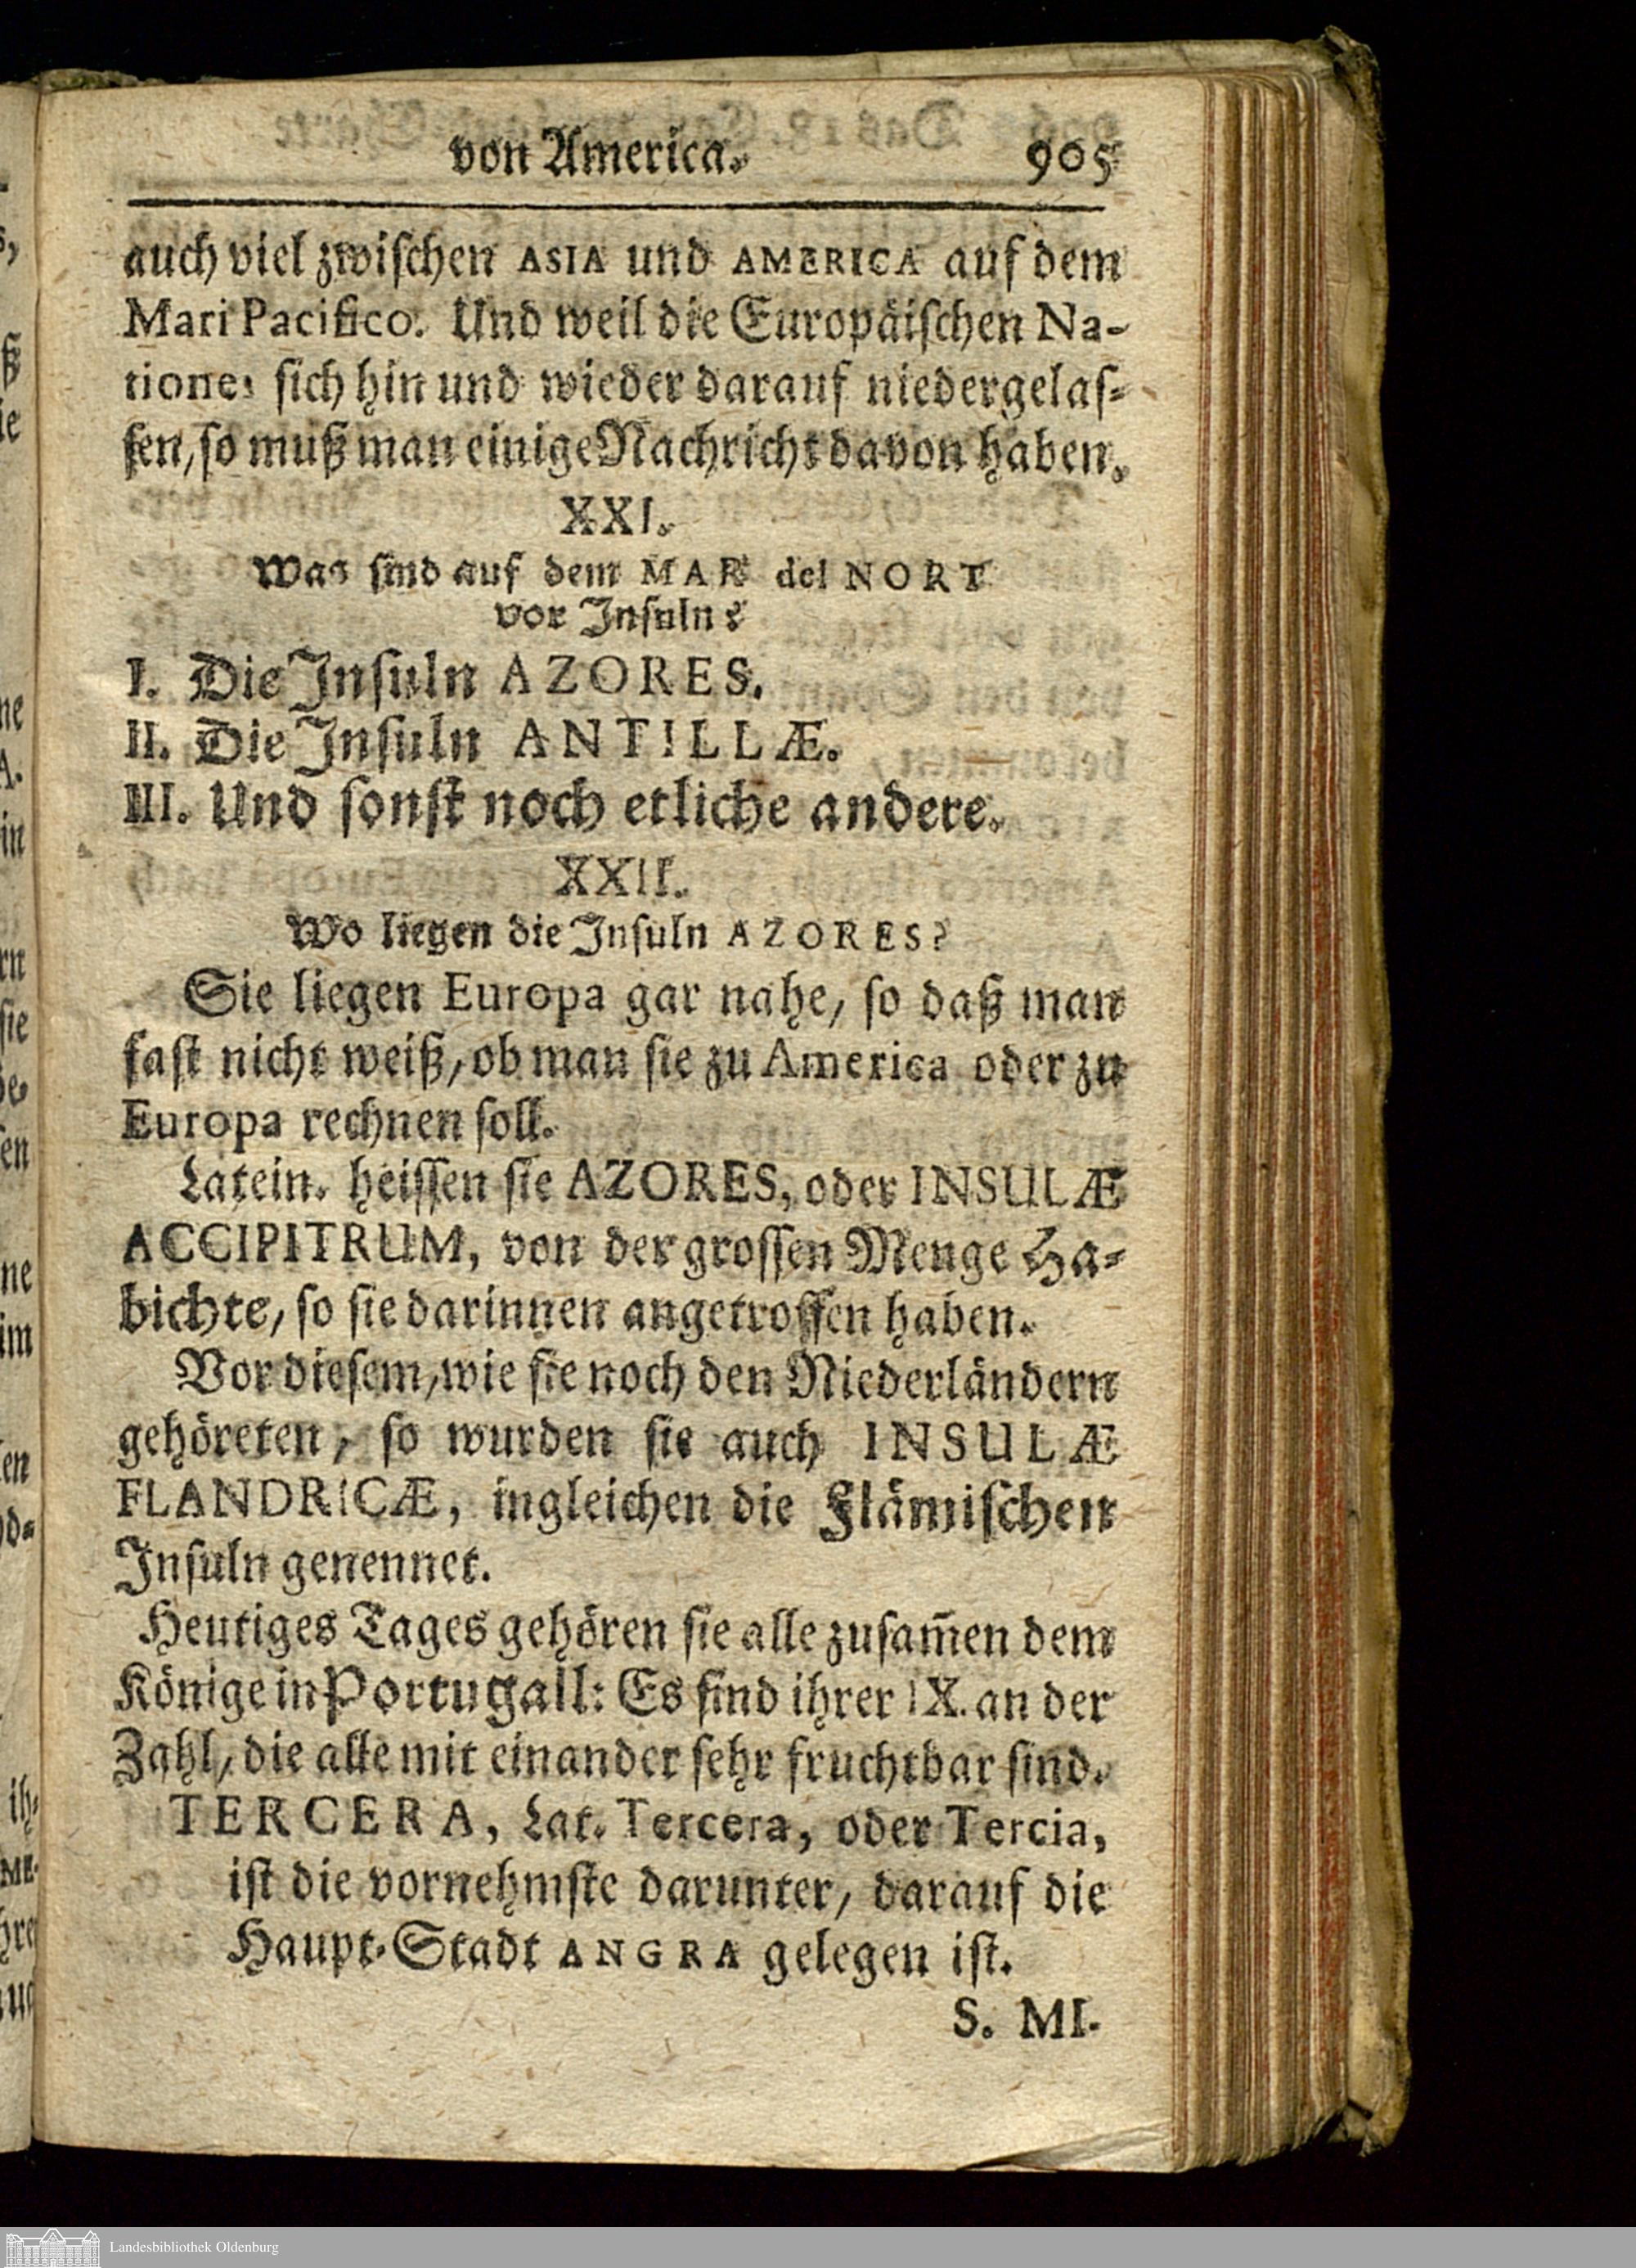 von America.                905
auch viel zwischen ASIA und AMERICA auf dem
Mari Pacifico. Und weil die Europäischen Na-
tiones sich hin und wieder darauf niedergelas-
sen, so muß man einige Nachricht davon haben.
XXI.
Was sind auf dem MAR del NORT
vor Insuln?
I. Die Insuln AZORES.
II. Die Insuln ANTILLÆ.
III. Und sonst noch etliche andere.
XXII.
Wo liegen die Insuln AZORES?
Sie liegen Europa gar nahe, so daß man
fast nicht weiß, ob man sie zu America oder zu
Europa rechnen soll.
Latein. heissen sie AZORES, oder INSULÆ
ACCIPITRUM, von der grossen Menge Ha-
bichte, so sie darinnen angetroffen haben.
Vor diesem, wie sie noch den Niederländern
gehöreten, so wurden sie auch INSULÆ
FLANDRICÆ, ingleichen die Flämischen
Insuln genennet.
Heutiges Tages gehören sie alle zusam̄en dem
Könige in Portugall: Es sind ihrer IX. an der
Zahl, die alle mit einander sehr fruchtbar sind.
TERCERA, Lat. Tercera, oder Tercia,
ist die vornehmste darunter, darauf die
Haupt-Stadt ANGRA gelegen ist.
S. MI-
Landesbibliothek Oldenburg